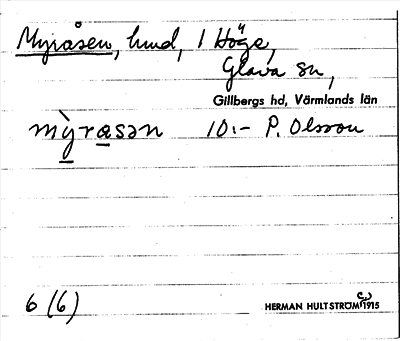 Myråsen, hmd, 1 Höge,
Glava sn,
Gillbergs hd, Värmlands län
mỳrasən 10:- P. Olsson
6 (6) HERMAN HULTSTRÖM 1915